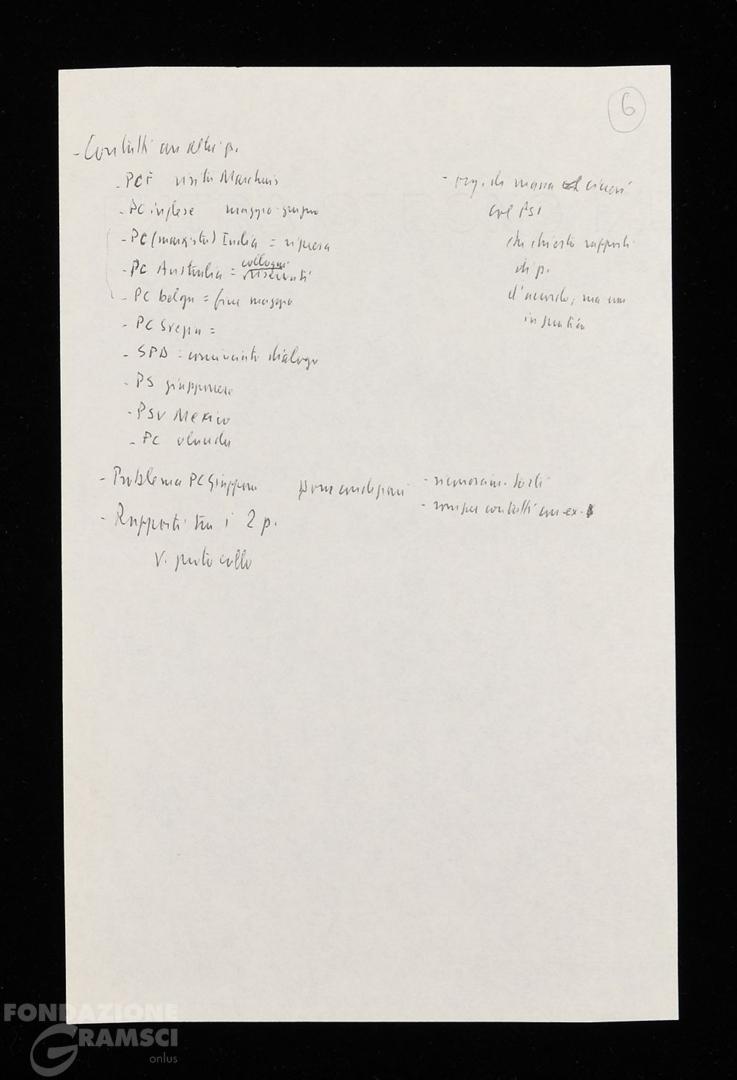 6
- Contatti con altri p.
- PCF visita Marchais
- PC inglese maggio-giugno
- PC (marxista) India = ripresa
- PC Australia = colloqui riservati
- PC belga = fine maggio
- PC Svezia =
- SPD = cominciato dialogo
- PS giapponese
- PSU Mexico
- PC olanda
- org. di massa cinesi
col PSI
che chiesto rapporti
di p.
d'accordo, ma con
- Problema PC Giappone pone condizioni
- riconoscim. torti
- romper contatti con ex-
- Rapporti tra i 2 p.
V. protocollo
FONDAZIONE
GRAMSCI
onlus